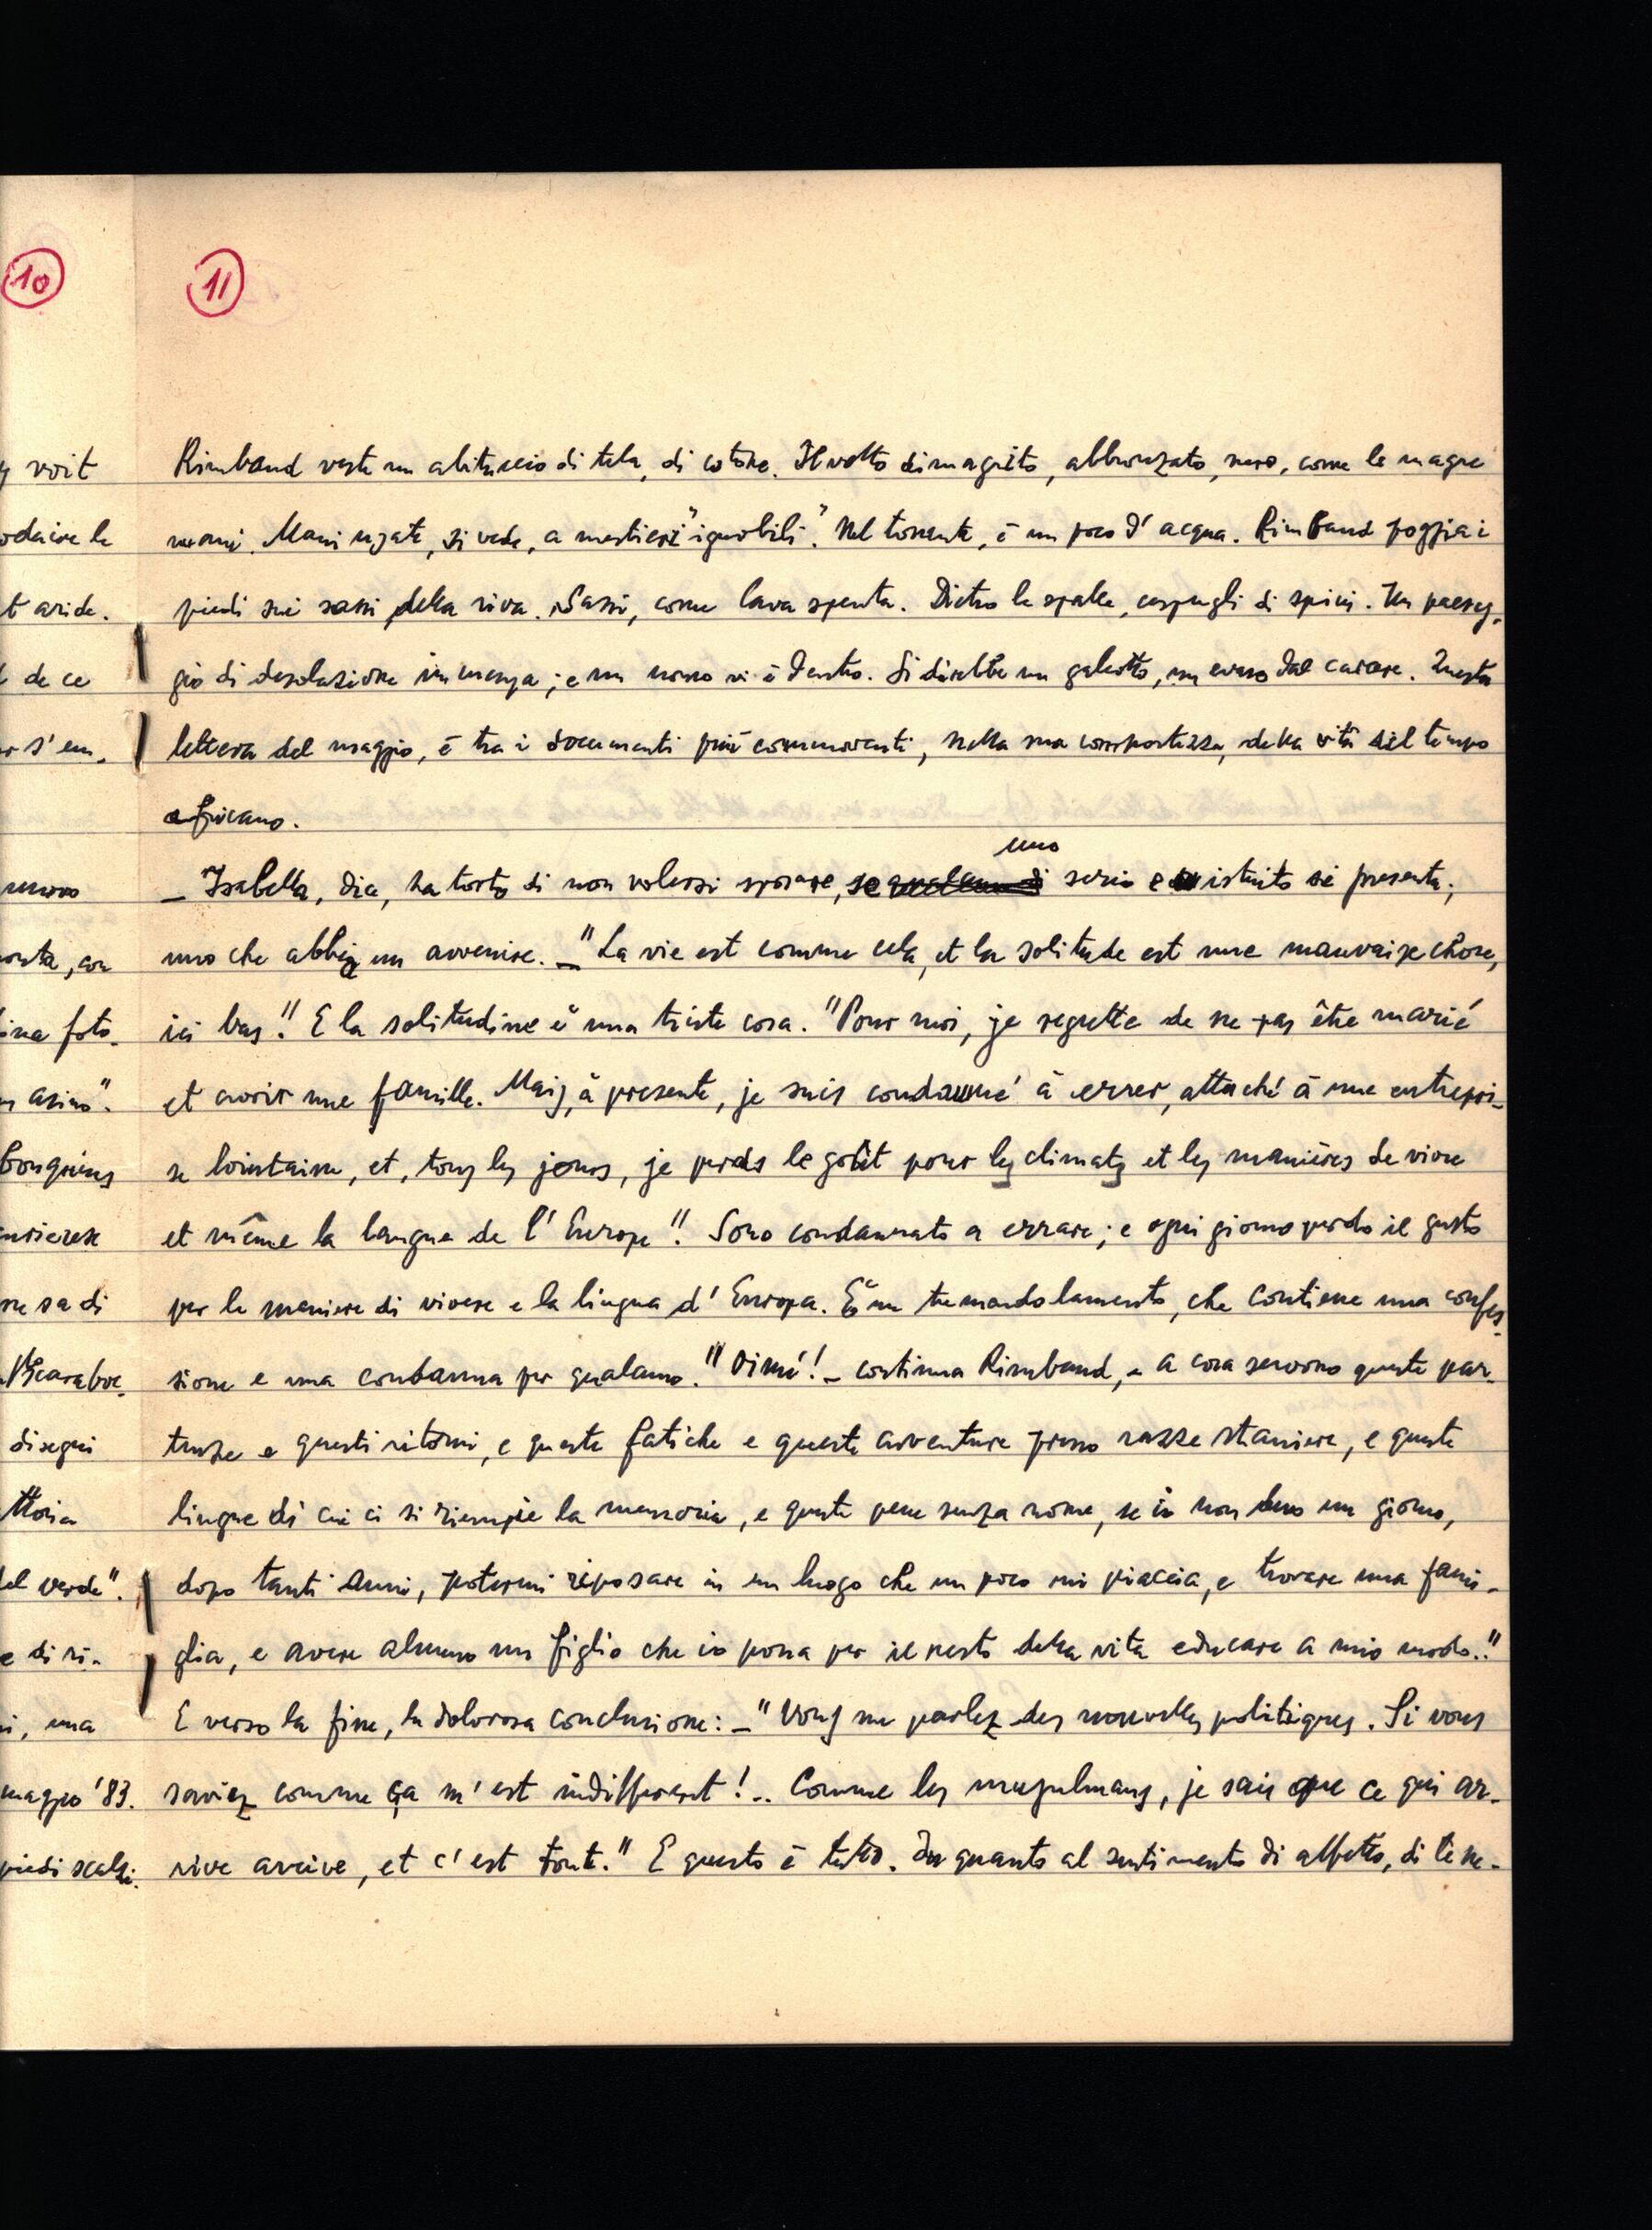 10
11
voit
Rimbaud veste un abituccio di tela, di cotone. Il volto dimagrito, abbronzato, nero, come le magre
mani. Mani usate, si vede, a mestieri "ignobili". Nel torrente, è un poco d'acqua. Rimbaud poggia i
t aride.
piedi sui sassi della riva. Sassi, come lava spenta. Dietro le spalle, cespugli di spini. Un paesag-
de ce
gio di desolazione immensa; e un uomo vi è dentro. Si direbbe un galeotto, un evaso dal carcere. Questa
s'em-
lettera del maggio, è tra i documenti più commoventi, nella sua compostezza, della vita del tempo
africano.
— Isabella, dice, ha torto di non volersi sposare, se uno serio e istruito si presenta;
uno che abbia un avvenire. — "La vie est comme cela, et la solitude est une mauvaise chose,
foto-
ici bas". E la solitudine è una triste cosa. "Pour moi, je regrette de ne pas être marié
asino".
et avoir une famille. Mais, à presente, je suis condamné à errer, attaché à une entrepri-
se lointaine, et, tous les jours, je perds le goût pour les climats et les manières de vivre
et même la langue de l'Europe". Sono condannato a errare; e ogni giorno perdo il gusto
ne sa di
per le maniere di vivere e la lingua d'Europa. È un tremendo lamento, che contiene una confes-
sione e una condanna per qualcuno. "Oimé! – continua Rimbaud, – a cosa servono queste par-
disegni
tenze e questi ritorni, e queste fatiche e queste avventure presso razze straniere, e queste
ttoria
lingue di cui ci si riempie la memoria, e queste pene senza nome, se io non devo un giorno,
del verde".
dopo tanti anni, potermi riposare in un luogo che un poco mi piaccia, e trovare una fami-
e di ri-
glia, e avere almeno un figlio che io possa per il resto della vita educare a mio modo.."
una
E verso la fine, la dolorosa conclusione: — "Vous me parlez des nouvelles politiques. Si vous
maggio '83.
saviez comme ça m'est indifferent!.. Comme les musulmans, je sais que ce qui ar-
piedi scalzi.
rive arrive, et c'est tout." E questo è tutto. In quanto al sentimento di affetto, di tene-